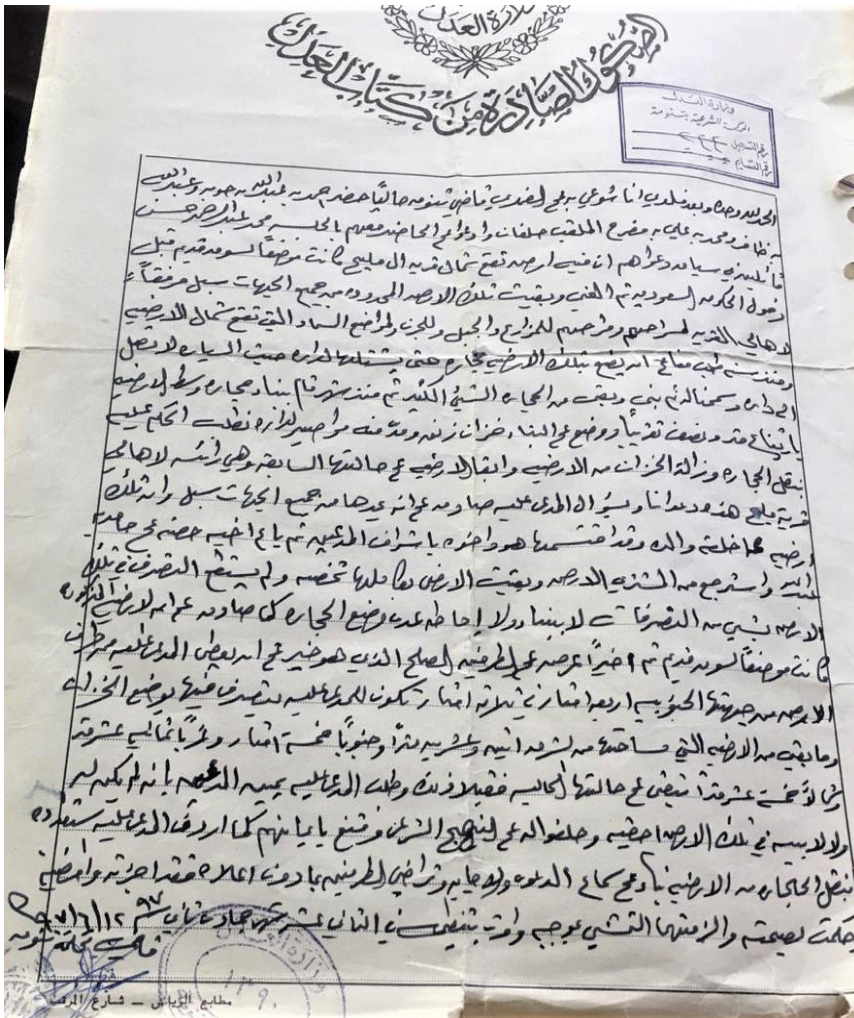 وزارة العدل
الصكوك الصادرة من كتاب العدل
وزارة العدل
المحكمة الشرعية بتنومة
رقم التسجيل
الحمد لله وحده وبعد فلدي انا شوعي بن علي قاضي تنومه حالياً حضر حمد بن عبدالله بن حوبه وعبدالله
بن ظافر ومحمد بن علي بن مفرح الملقب وادعوا على الحاضر معهم بالجلسه محمد عبدالرحمن حسن
قائلين في دعواهم ان فيه ارض تقع شمال قرية ال مليح كانت موضعاً لسوق قديم قبل
دخول الحكومه السعوديه ثم الغي وبقيت تلك الارض المحدوده من جميع الجهات سبل مرفقاً
لاهالي القريه للمزارع والجبل وللجرن ولمواضع السماد التي تقع شمال الارض
ومنذ سنه طلب منا ان يضع بتلك الارض حجاره حتى ينتقلها لداره حيث السياره لا تصل
الى داره وسمحنا له ثم بنى وبقي من الحجاره الشيء الكثير ثم منذ شهر قام ببناء حجاره وسط الارض
بارتفاع متر ونصف تقريباً ووضع على البناء خزان ومد منه مواصير لداره نطلب الحكم عليه
بنقل الحجاره وإزالة الخزان من الارض وابقاء الارض على حالتها السابقه وهي لاهالي
قرية مليح هذه دعوانا وبسؤال المدعى عليه صادق على انه يحدها من جميع الجهات سبل وان تلك
ارض خلفة والده وقد اقتسمها هو واخوه باشراف المدعين ثم باع اخيه حصته على
عبدالله واسترجع من المشتري الارض وبقيت الارض بكاملها تخصه ولم يستطع التصرف في تلك
الارض بشيء من التصرفات لا ببناء ولا إحاطه عدى وضع الحجاره كما صادق على ان الارض المذكوره
كانت موضعاً لسوق قديم ثم اخيراً عرض على الطرفين الصلح الذي هو خير على ان يعطى المدعى عليه من طرف
الارض من جهتها الجنوبيه اربعة امتار في ثلاثة امتار تكون للمدعى عليه يتصرف فيها بوضع الخزان
وما بقي من الارض التي مساحتها من شرق اثنين وعشرين متراً وجنوباً خمسة امتار وغرباً ثمانية عشر متر
وشمالاً خمسة عشر متراً تبقى على حالتها الحاليه فقبلا ذلك وطلب المدعى عليه يمين المدعين بانه لم يكن له
ولا لابيه في تلك الارض احقيه وحلفوا له على النهج الشرعي وقنع بايمانهم كما اردف المدعى عليه استعداده
بنقل الحجاره من الارض بناء على سماع الدعوى والاجابه وتراضي الطرفين بما دون اعلاه فقد اجزته وامضيته
وحكمت بصحته والزمتهما التمشي بموجبه وامرت بتنظيمه في الثاني عشر شهر جمادى ثاني ٩٧ ١٢/٦/٩٧
قاضي محكمة تنومه
وزارة العدل
١٣٩٠
مطابع الرياض — شارع المرقب